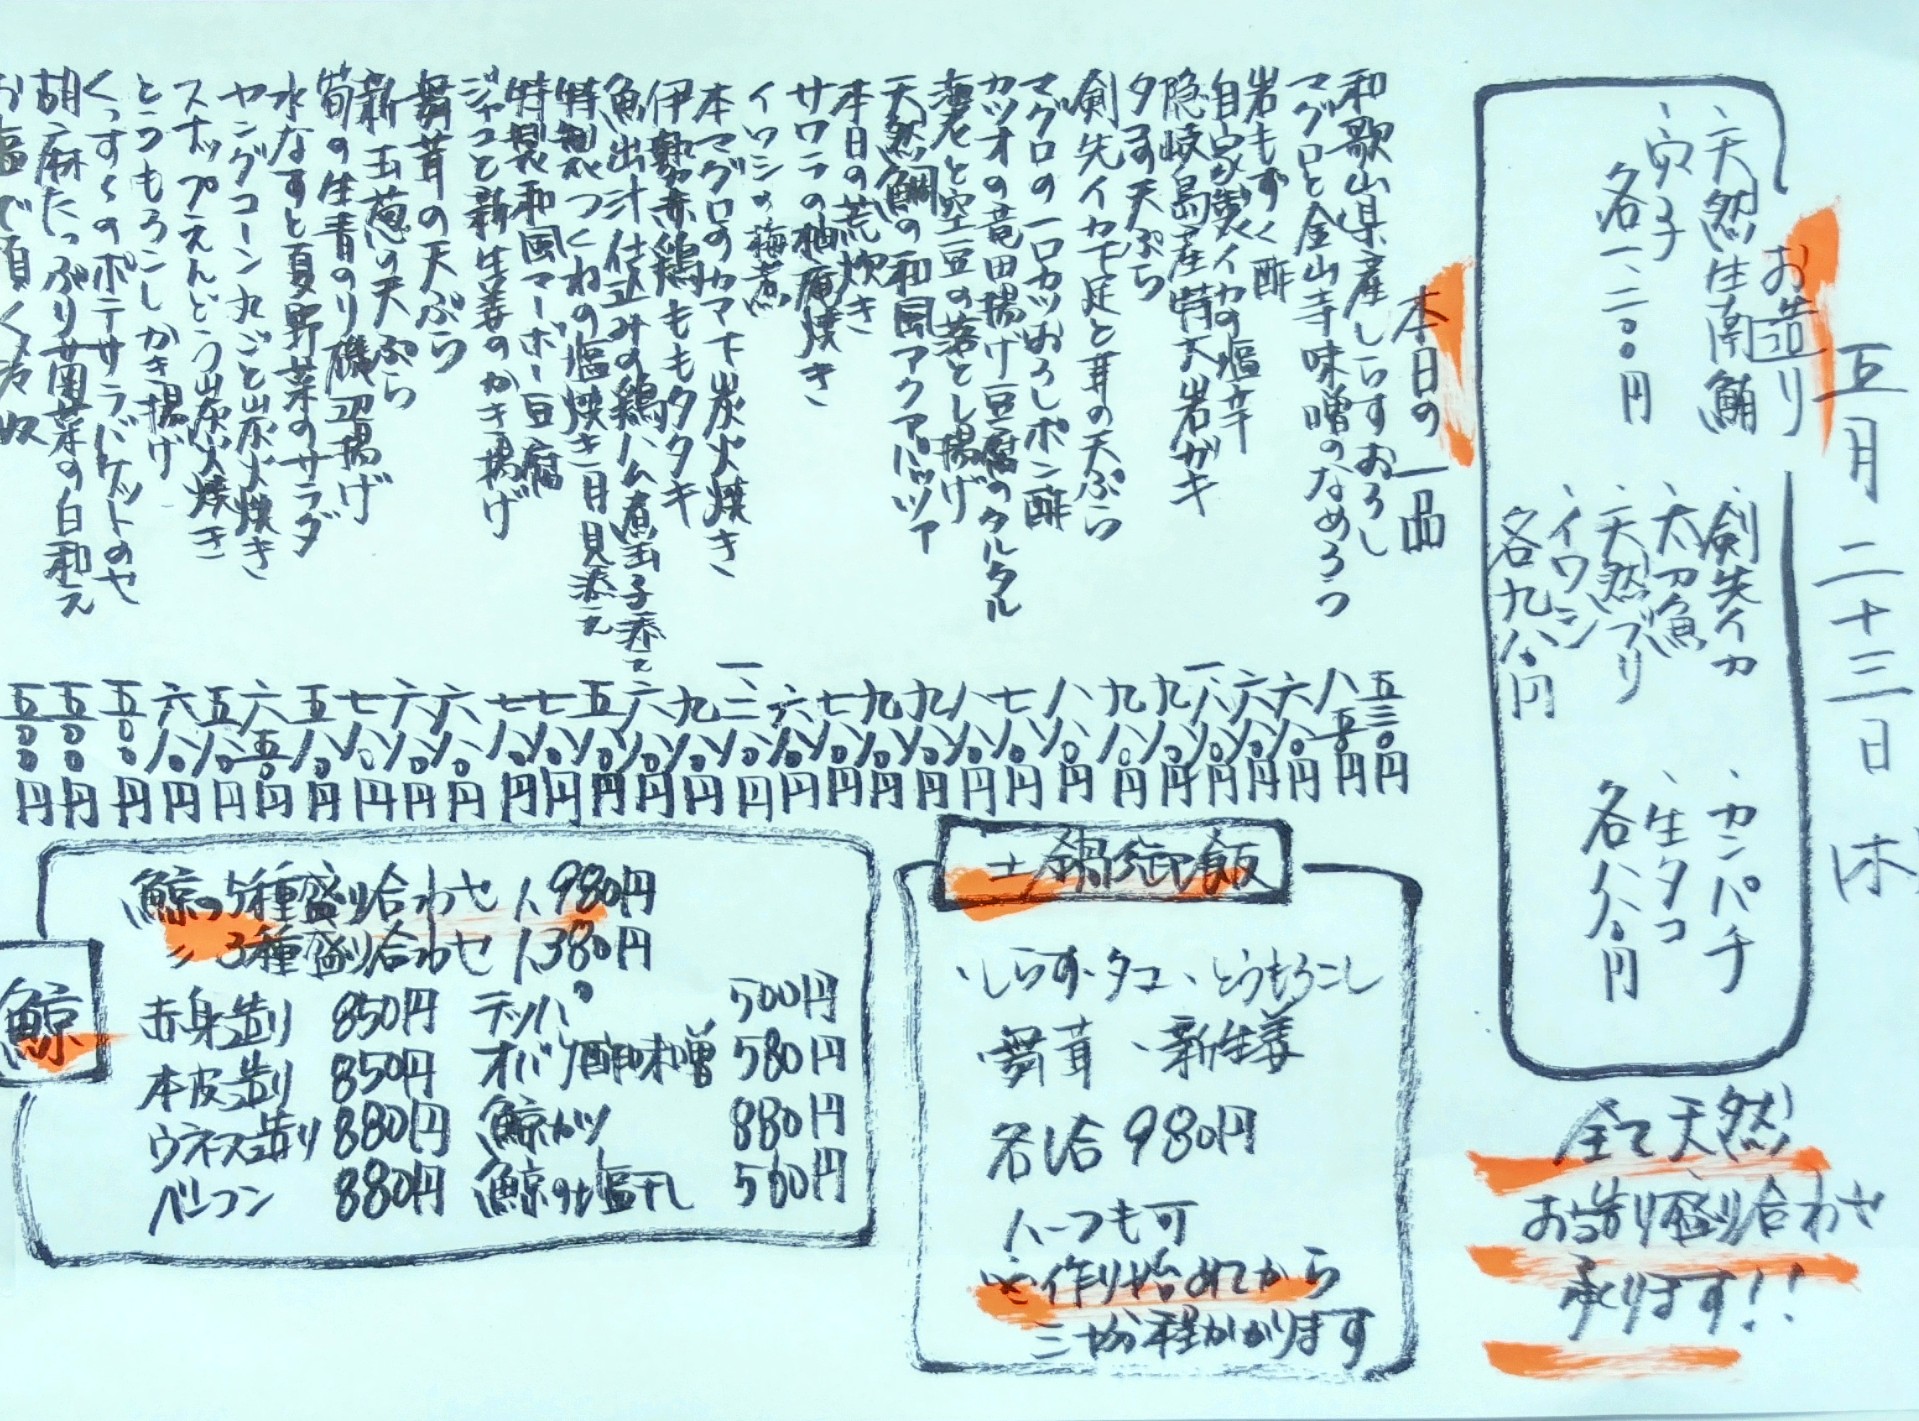 五月二十三日 木
お造り
、天然生南鮪
、穴子
各一、二〇〇円
、剣先イカ
、太刀魚
、天然ブリ
、イワシ
各九八〇円
、カンパチ
、生タコ
各八八〇円
全て天然
お造り盛り合わせ
承ります!!
本日の一品
和歌山県産しらすおろし 五三〇円
マグロと金山寺味噌のなめろう 八五〇円
岩もずく酢 六八〇円
自家製イカの塩辛 六八〇円
隠岐島産特大岩ガキ 一、八八〇円
タコす天ぷら 九八〇円
剣先イカ下足と茸の天ぷら 九八〇円
マグロの一口カツおろしポン酢 八八〇円
カツオの竜田揚げ豆腐のタルタル 七八〇円
海老と空豆の落とし揚げ 八八〇円
天然鯛の和風アクアパッツァ 九八〇円
本日の荒炊き 九八〇円
サワラの柚庵焼き 七八〇円
イワシの梅煮 六八〇円
本マグロのカマ下炭火焼き 一、二八〇円
伊勢赤鶏ももタタキ 九八〇円
魚出汁仕込みの鶏ハム煮玉子添え 六八〇円
特製つくねの塩焼き月見添え 五八〇円
特製和風マーボー豆腐 七八〇円
ジャコと新生姜のかき揚げ 七八〇円
舞茸の天ぷら 六八〇円
新玉葱の天ぷら 六八〇円
筍の生青のり磯辺揚げ 七八〇円
水なすと夏野菜のサラダ 五八〇円
ヤングコーン丸ごと炭火焼き 六五〇円
スナップえんどう炭火焼き 五八〇円
とうもろこしかき揚げ 六八〇円
くっすくのポテサラバケットのせ 五〇〇円
胡麻たっぷり菊菜の白和え 五〇〇円
お塩で頂く冷奴 五〇〇円
土鍋御飯
・しらす・タコ・とうもろこし
・舞茸 ・新生姜
各1合 980円
ハーフも可
※作り始めてから
三十分程かかります
鯨
鯨の5種盛り合わせ 1,980円
〃 3種盛り合わせ 1,380円
赤身造り 850円
本皮造り 850円
ウネス造り 880円
ベーコン 880円
テッパ 500円
オバケ酢味噌 580円
鯨カツ 880円
鯨の塩干し 500円